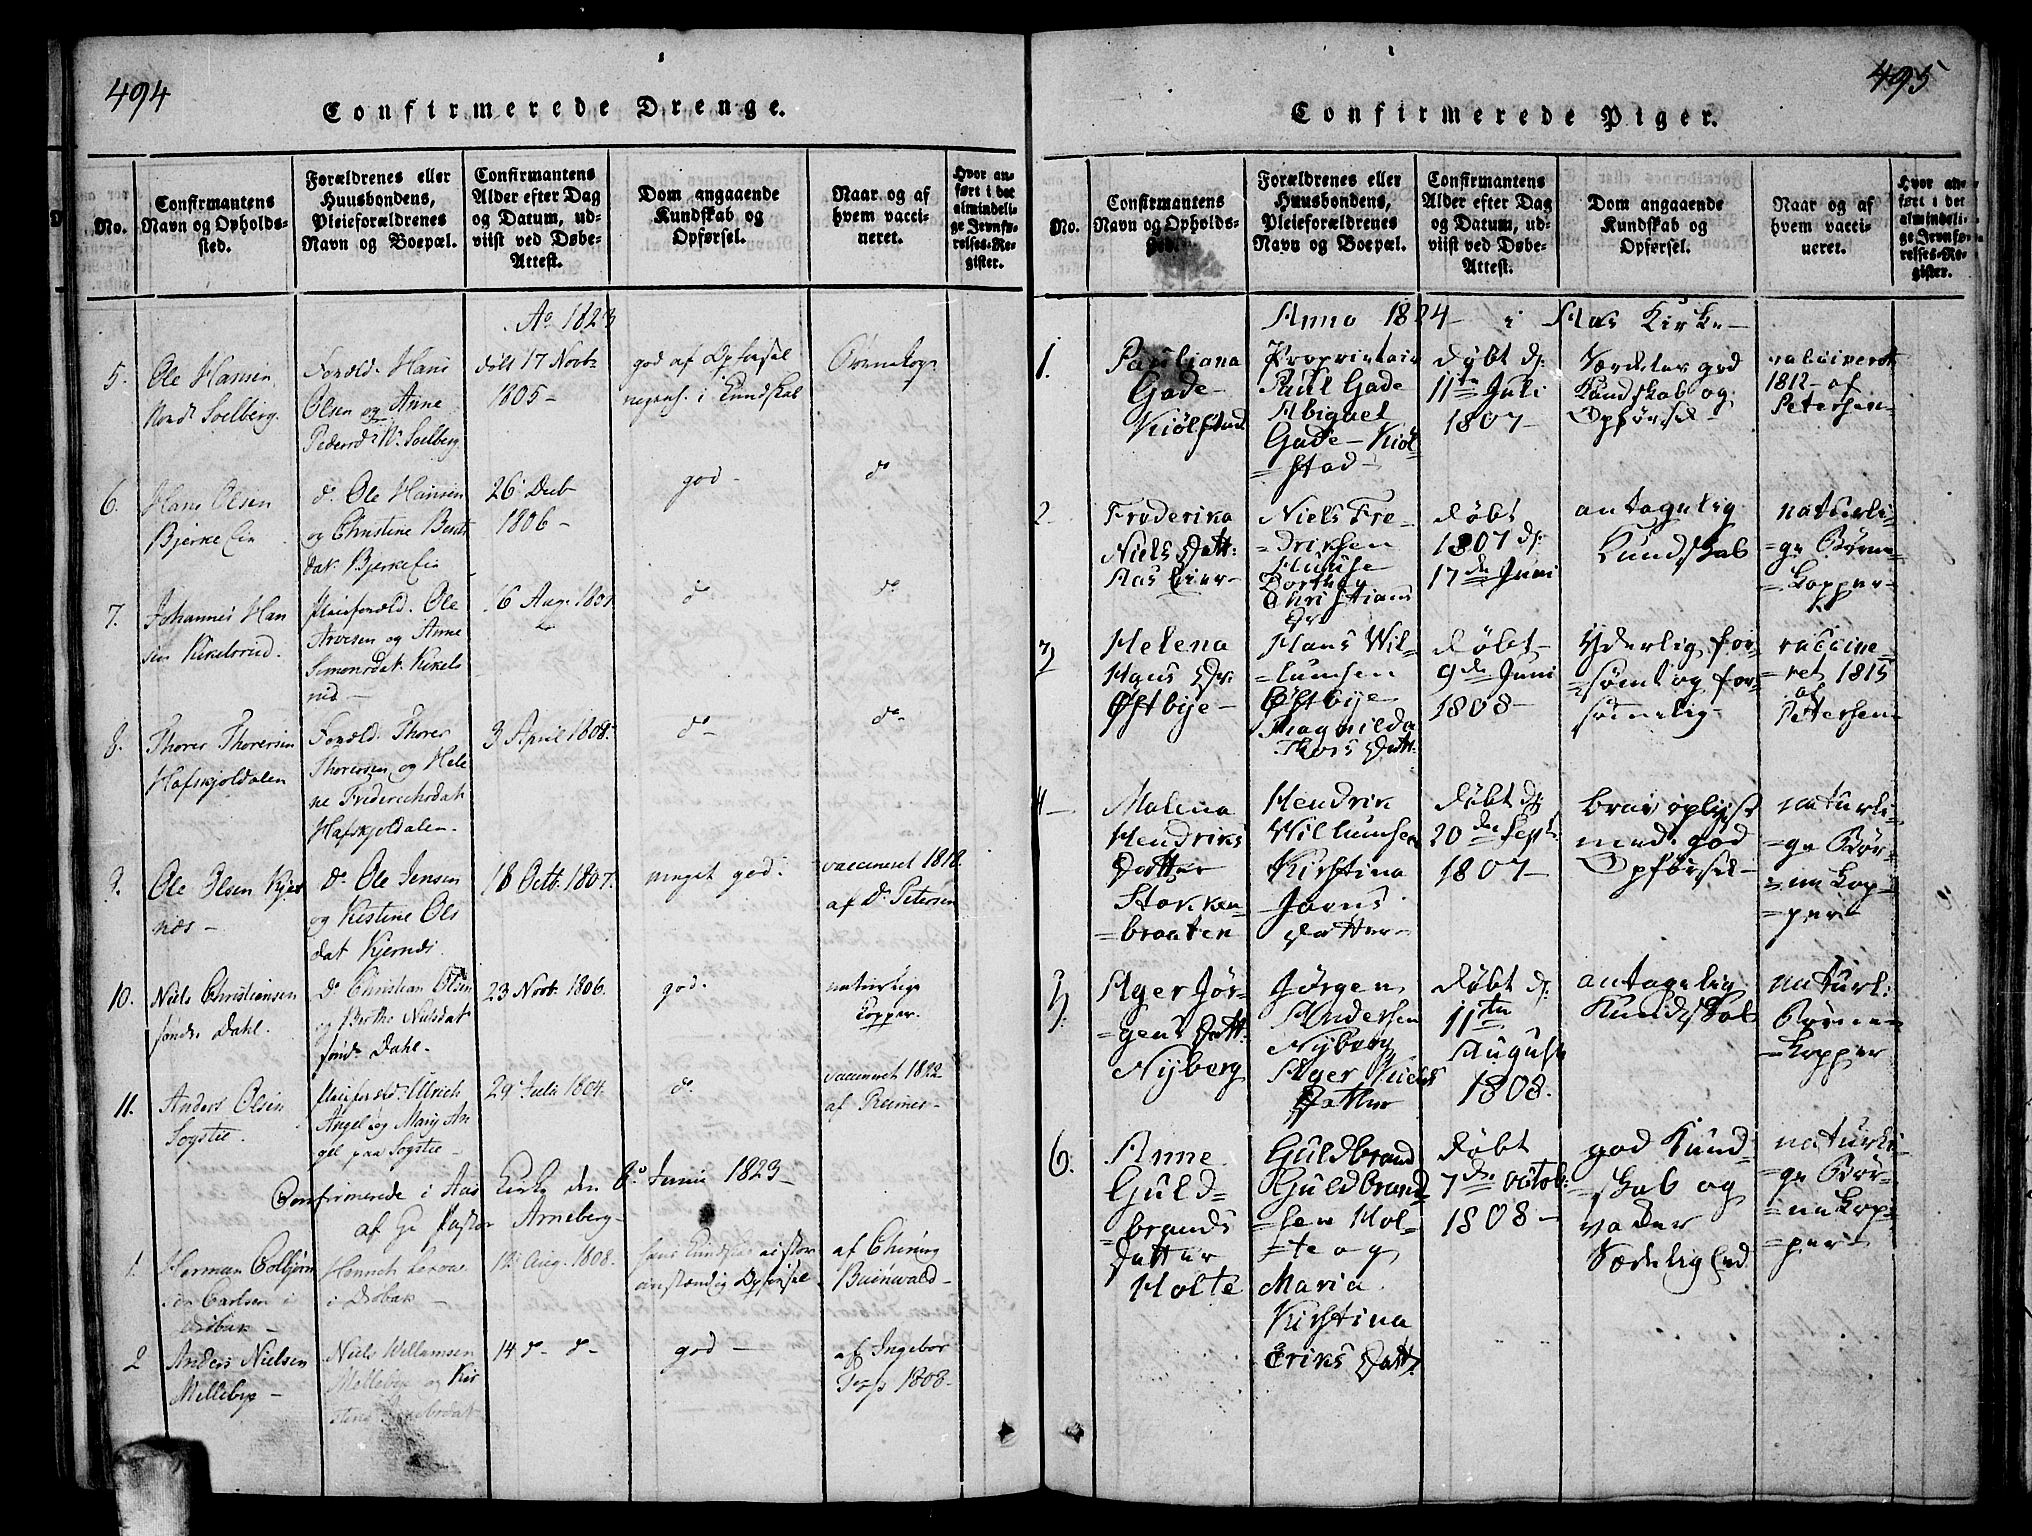 494
Confirmerede Drenge.
No.
Confirmantens
Navn og Opholds-
sted.
Forældrenes eller
Huusbondens,
Pleieforældrenes
Navn og Boepæl.
Confirmantens
Alder efter Dag
og Datum, ud-
viist ved Døbe-
Attest.
Dom angaaende
Kundskab og
Opførsel.
Naar og af
hvem vacci-
neret.
Hvor an-
ført i det
almindeli-
ge Jevnfø-
relses-Re-
gister.
Ao 1823
5.
Ole Hansen
Nordr Soelberg.
Foræld: Hans
Olsen og Anne
Pedersdr Nr Soelberg
døbt 17 Novbr
1805-
god af Opførsel
i Kundskab
6.
Hans Olsen
Bjerke Eie
do Ole Hansen
og Christine Bents
dat Bjerke Eie
26 Decb
1806-
god-
do
7.
Johannes Han
sen Kikelsrud.
Pleieforæld: Ole
Arvesen og Anne
Simensdat: Kikels
rud-
16 Aug: 1807
do
do
8.
Thorer Thorersen
Hafskjoldalen
Foræld: Thorer
Thorersen og Hele
ne Friderechsdat
Hafskjoldalen.
3 April 1808.
do-
do-
9.
Ole Olsen Kjer
næs-
do Ole Jensen
og Kestine Ols
dat Kjernæs.
18 Octb. 1807.
meget god.
vaccineret 1818
af Dr Petersen
10.
Niels Christiansen
søndr Dahl.
Do Christian Olsen
og Berthe Nielsdat
søndr Dahl.
23 Novb. 1806.
god.
naturlige
Kopper.
11.
Anders Olsen
Sogstie.
Pleieforæld: Ulrich
Angel og Mary An
gel paa Sogstie-
29 Julii 1804.
do
vaccineret 1822
af Reimers-
Confirmerede i Aas Kirke den 8de Junii 1823-
af Pastor Arneberg-
1.
Herman Colbjørn
sen Carlsen i
Drøbak-
Henrich
i Drøbak-
12 Aug. 1808.
anstændig Opførsel
af Chirurg
Buenwald-
2
Anders Nielsen
Mellebye-
Niels Willumsen
Mellebye og Kir
stine
14 do- do-
god-
af Ingebor
1808-
495
Confirmerede Piger.
No.
Confirmantens
Navn og Opholds-
sted.
Forældrenes eller
Huusbondens,
Pleieforældrenes
Navn og Boepæl.
Confirmantens
Alder efter Dag
og Datum, ud-
viist ved Døbe-
Attest.
Dom angaaende
Kundskab og
Opførsel.
Naar og af
hvem vacci-
neret.
Hvor an-
ført i det
almindeli-
ge Jevnfø-
relses-Re-
gister.
Anno 1824 i Aas Kirke-
1.
Pauliana
Gade-
Kiølstad
Proprietair
Paul Gade
Abiguel
Gade-Kiøl
=stad-
Døbt d:
11te Juli
1807-
Særdeles god
Kundskab og
Opførsel-
vacineret
1812- af
Petersen-
2.
Frederika
Niels Datt:
Aas Eier-
Niels Fre-
=driksen
Huuse
Dorthea
Christians
Dr
Døbt
1807 d:
17de Juni
antagelig
Kundskab
naturli-
=ge Børne-
=kopper-
3
Helena
Hans Dr:
Østbije-
Hans Wil-
=lumsen
Østbije-
Magnilda
Thors Datt:
Døbt-
9de Juni
1808-
Yderlig for-
=sømt og for-
sømelig-
vaccine-
=ret 1815
af
Petersen
4-
Malena
Hendriks
Datter
Stokken-
=braaten
Hendrik
Willumsen
Kirstina
Joens
Datter-
Døbt d:
20de Sept:
1807-
brav oplyst
med god
Opførsel-
naturli-
=ge Bør-
=ne Kop-
=per-
5.
Ager Jør-
=gens Datt:
Nijberg
Jørgen
Andersen
Nijberg
Ager Niels
Datter
Døbt d:
11te
August
1808.
antagelig
Kundskab
naturl:
Børne-
=kopper
6.
Anne
Guld-
=brands
Datter
Holte
Guldbrand
Guldbrand-
=sen Hol-
=te og
Maria
Kirstina
Eriks Datt:
Døbt
7de Octob:
1808-
god Kund-
=skab og
Sædelighed
naturli-
=ge Bør-
=ne Kop-
=per-